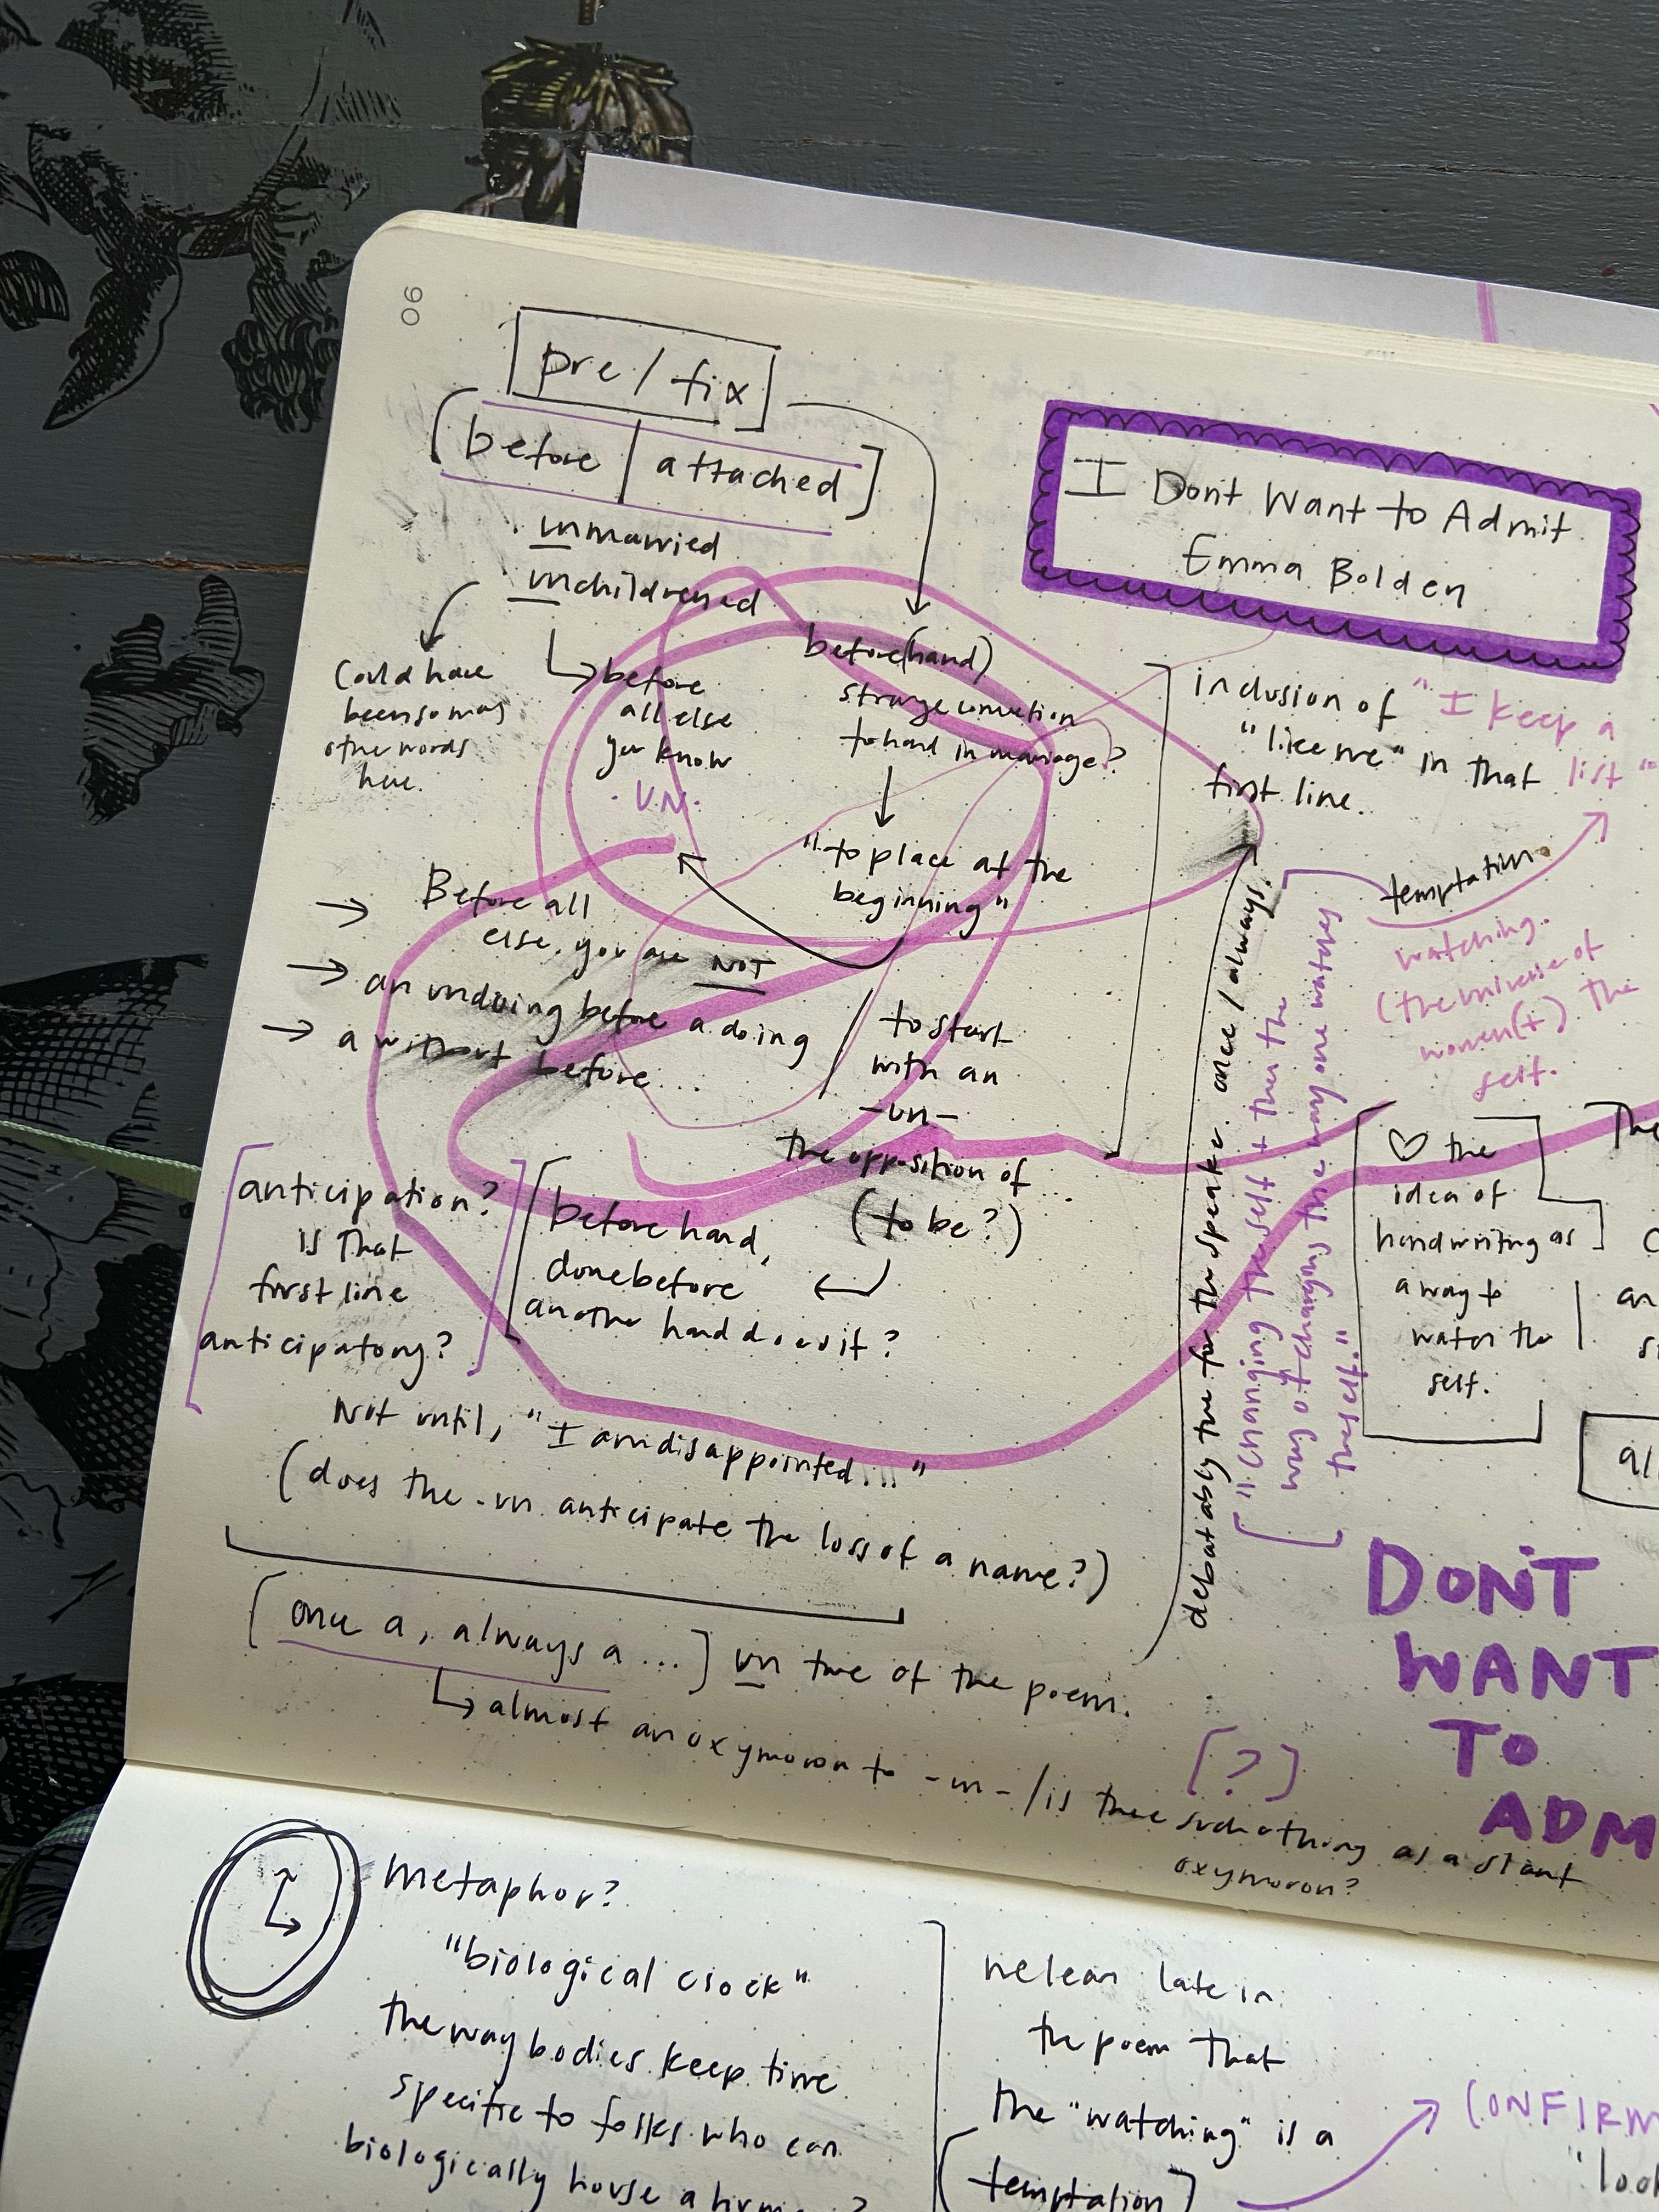 90
pre/fix
before | attached
· unmarried
· unchildrened
Could have
been so many
other words
here.
before
all else
you know
· UN ·
before(hand)
strange connection
to hand in marriage?
"to place at the
beginning"
→ Before all
else, you are NOT
→ an undoing before a doing
→ a without before...
/ to start
with an
-un-
the opposition of...
(to be?)
before hand,
done before
another hand does it?
anticipation?
is that
first line
anticipatory?
Not until, "I am disappointed..."
(does the -un anticipate the loss of a name?)
[once a, always a...] un true of the poem.
almost an oxymoron to -un- / is there such a thing as a slant
oxymoron?
[?]
I Dont Want to Admit
Emma Bolden
inclusion of "I keep a
"like me" in that list"
first line.
temptation.
watching.
(the universe of
women(+) the
self.
debatably true for the speaker. once/always.
["changing the self + then the
way of changing the way one watches
the self."]
♡ the
idea of
handwriting as
a way to
watch the
self.
The
an
al
DON'T
WANT
TO
ADM
metaphor?
"biological clock"
the way bodies keep time
specific to folks who can
biologically house a
we lean late in
the poem that
the "watching" is a
(temptation)
CONFIRM
"loo